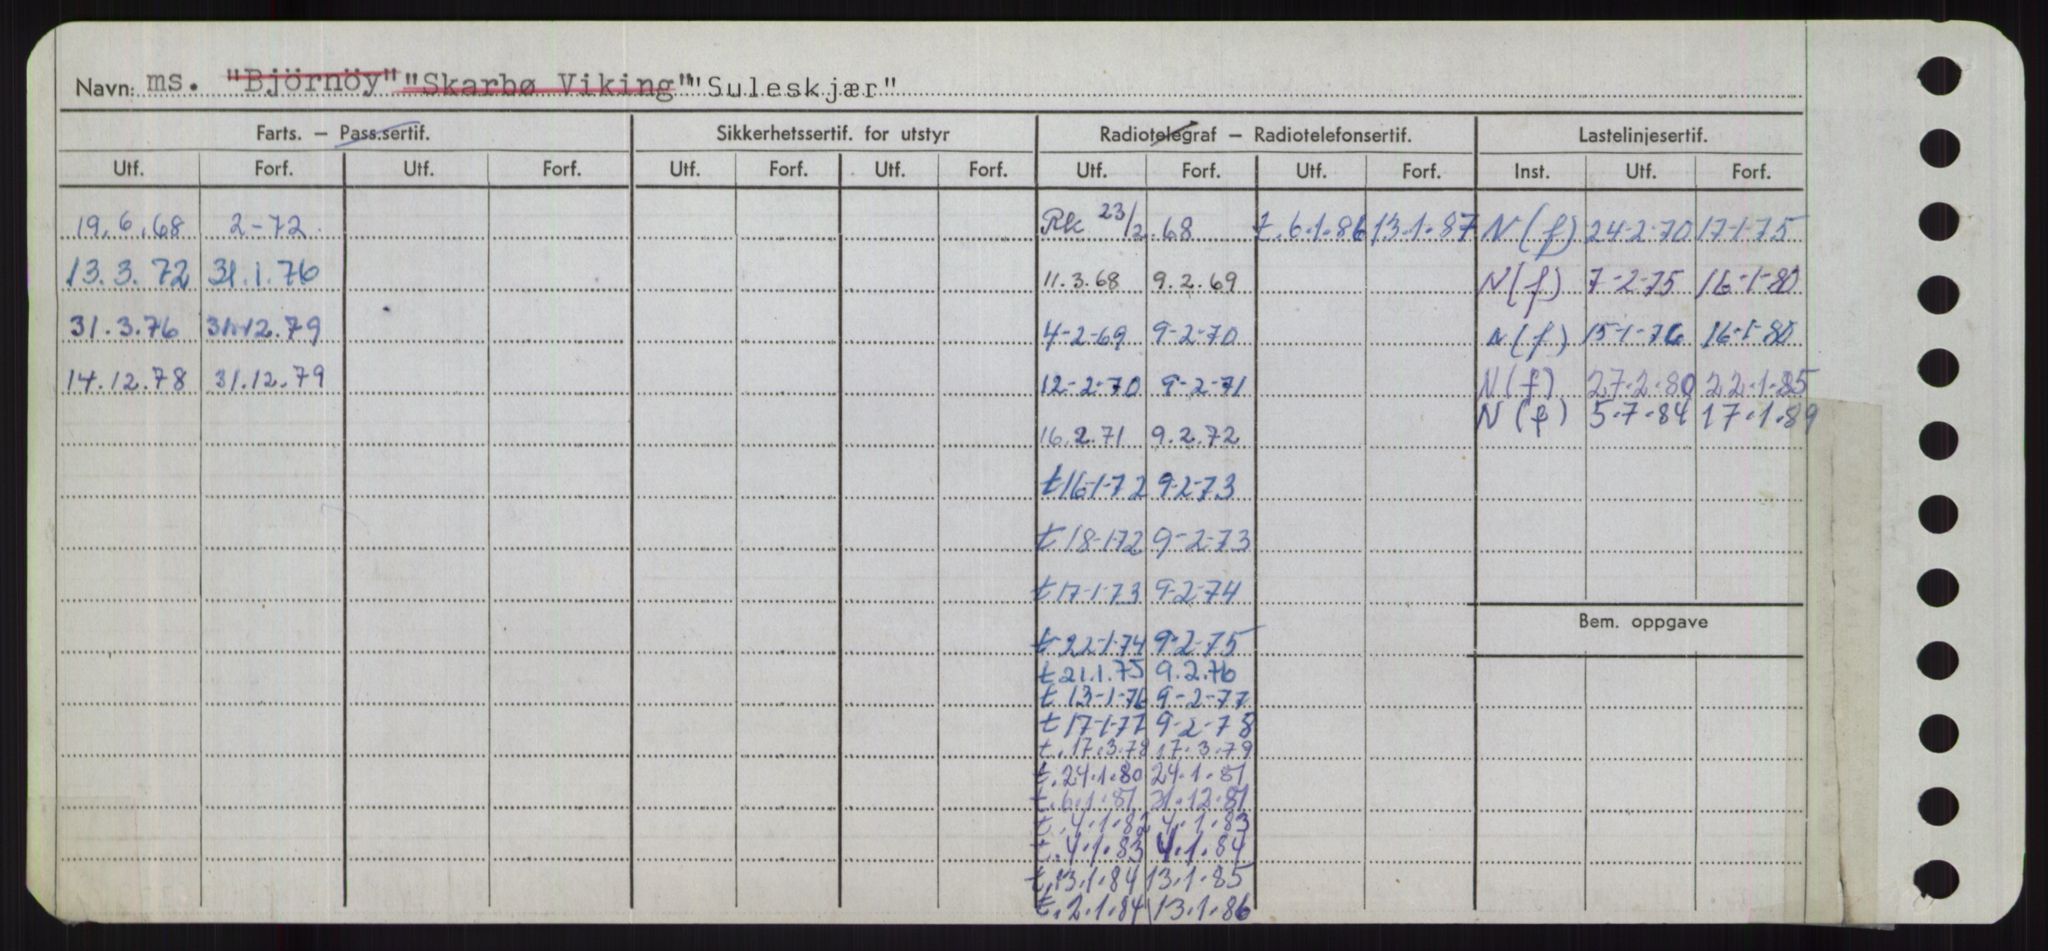 Navn: ms. "Björnöy" "Skarbø Viking" "Suleskjær"
Farts. – Pass.sertif. Sikkerhetssertif. for utstyr Radiotelegraf – Radiotelefonsertif. Lastelinjesertif.
Utf. Forf. Utf. Forf. Utf. Forf. Utf. Forf. Utf. Forf. Utf. Forf. Inst. Utf. Forf.
19.6.68 2-72 Rk 23/2.68 t.6.1.86 13.1.87 N(f) 24-2-70 17-1-75
13.3.72 31.1.76 11.3.68 9.2.69 N(f) 7-2-75 16-1-80
31.3.76 31.12.79 4-2-69 9-2-70 N(f) 15-1-76 16-1-80
14.12.78 31.12.79 12-2-70 9-2-71 N(f) 27.2.80 22.1.85
N(f) 5.7.84 17.1.89
16.2.71 9.2.72
t 16-1-72 9-2-73
t 18-1-72 9-2-73
t 17-1-73 9-2-74
Bem. oppgave
t 22-1-74 9-2-75
t 21.1.75 9.2.76
t 13-1-76 9-2-77
t 17-1-77 9-2-78
t.17.3.78 17.3.79
t.24.1.80 24.1.81
t.6.1.81 31.12.81
t.4.1.82 4.1.83
t.4.1.83 4.1.84
t.13.1.84 13.1.85
t.2.1.84 13.1.86